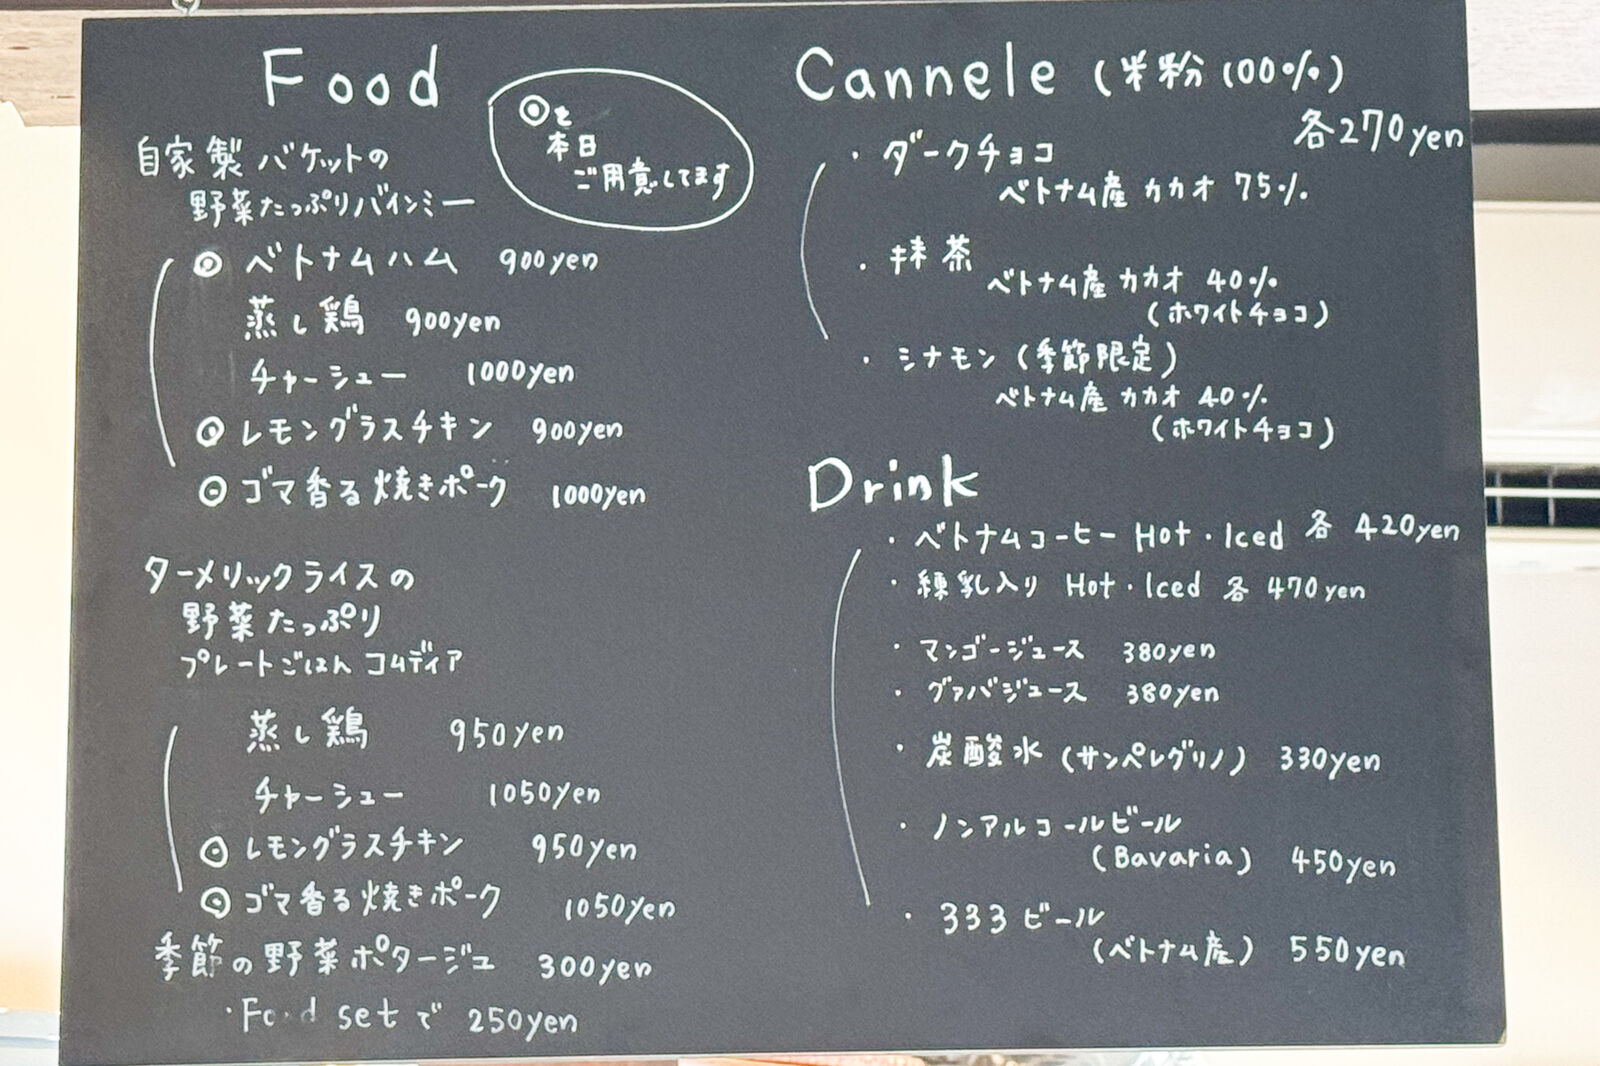 Food
◎を
本日
ご用意してます
自家製バケットの
野菜たっぷりバインミー
◎ ベトナムハム 900yen
蒸し鶏 900yen
チャーシュー 1000yen
◎ レモングラスチキン 900yen
◎ ゴマ香る焼きポーク 1000yen
ターメリックライスの
野菜たっぷり
プレートごはん コムディア
蒸し鶏 950yen
チャーシュー 1050yen
◎ レモングラスチキン 950yen
◎ ゴマ香る焼きポーク 1050yen
季節の野菜ポタージュ 300yen
・Food setで 250yen
Cannele (米粉100%)
各270yen
・ダークチョコ
ベトナム産カカオ 75%
・抹茶
ベトナム産カカオ 40%
(ホワイトチョコ)
・シナモン(季節限定)
ベトナム産カカオ 40%
(ホワイトチョコ)
Drink
・ベトナムコーヒー Hot・Iced 各 420yen
・練乳入り Hot・Iced 各 470yen
・マンゴージュース 380yen
・グァバジュース 380yen
・炭酸水(サンペレグリノ) 330yen
・ノンアルコールビール
(Bavaria) 450yen
・333ビール
(ベトナム産) 550yen